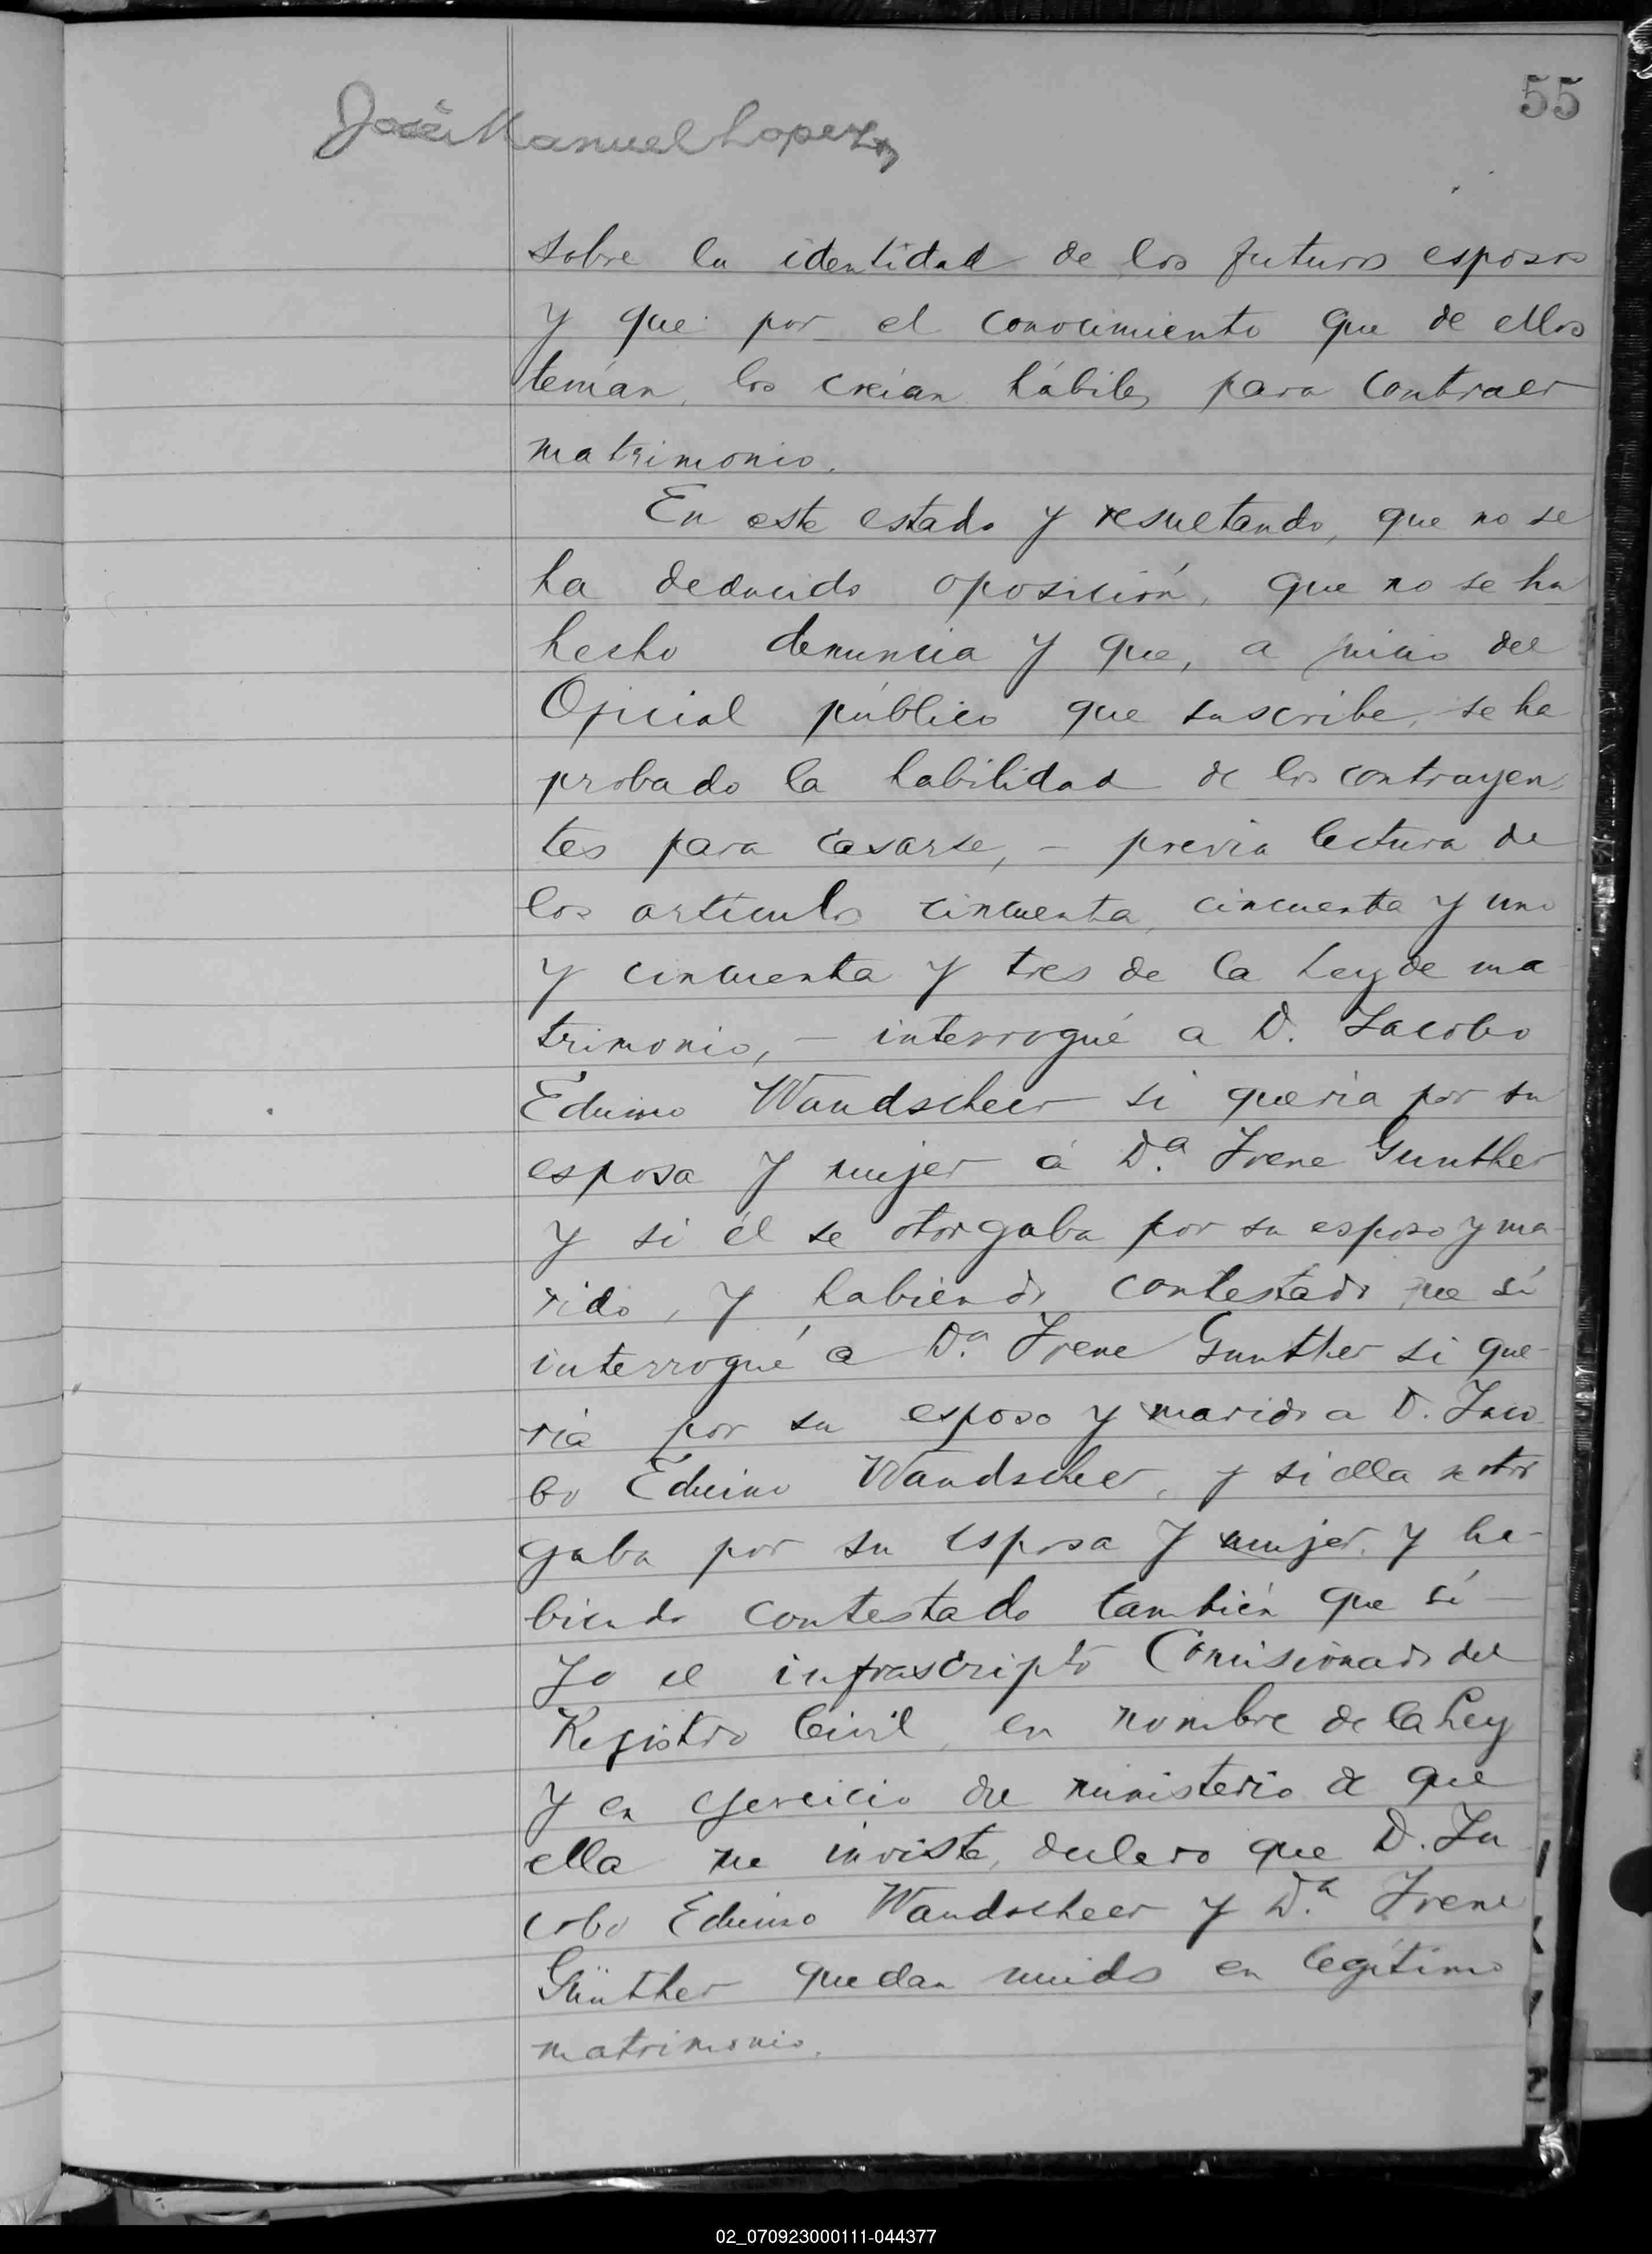 55
José Manuel Lopez
sobre la identidad de los futuros esposos
y que por el conocimiento que de ellos
tenían, los creían hábiles para contraer
matrimonio.
En este estado y resultando, que no se
ha deducido oposición, que no se ha
hecho denuncia y que, a juicio del
Oficial público que suscribe, se ha
probado la habilidad de los contrayen-
tes para casarse, - previa lectura de
los artículos cincuenta, cincuenta y uno
y cincuenta y tres de la Ley de ma
trimonio, - interrogué a D. Jacobo
Eduino Wandscheer si quería por su
esposa y mujer á Da. Irene Gunther
y si él se otorgaba por su esposo y ma-
rido, y habiendo contestado que sí
interrogué á Da. Irene Gunther si que-
ría por su esposo y marido a D. Jaco
bo Eduino Wandscheer, y si ella se otor
gaba por su esposa y mujer, y ha-
biendo contestado también que sí -
Yo el infrascripto Comisionado del
Registro Civil, en nombre de la Ley
y en ejercicio del ministerio de que
ella me inviste, declaro que D. Ja
cobo Eduino Wandscheer y Da. Irene
Günther quedan unidos en legítimo
matrimonio.
02_070923000111-044377